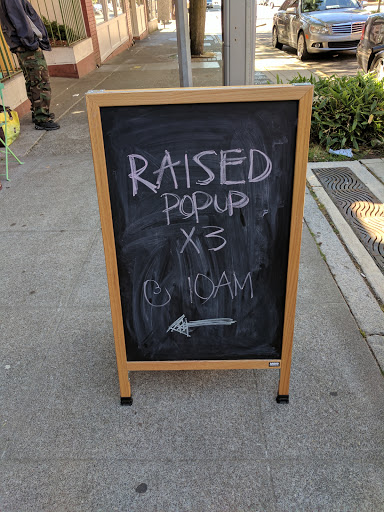 RAISED
POPUP
X3
@ 10AM